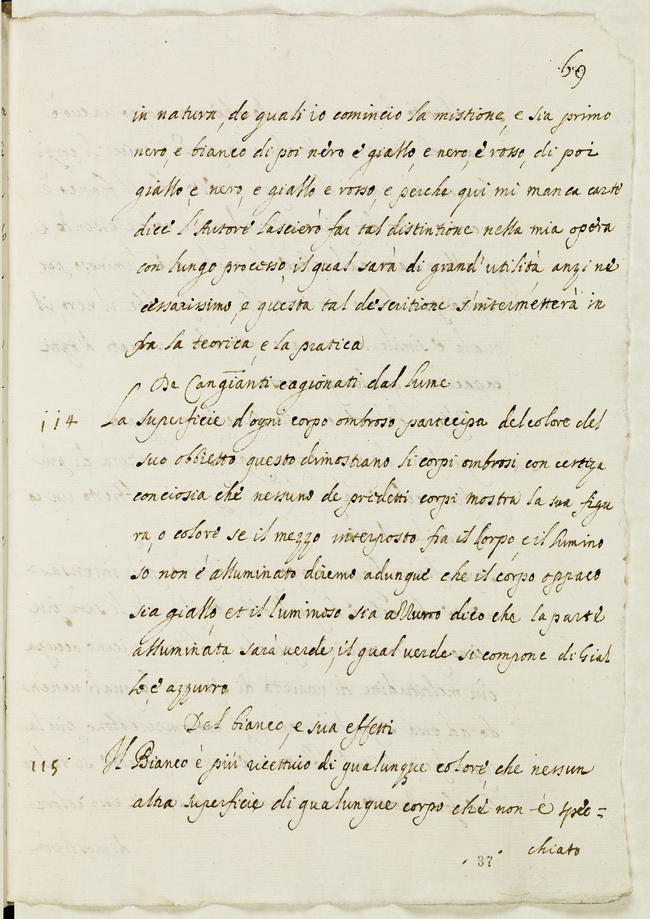 69
in natura, de quali io comincio la mistione, e sia primo
nero, e bianco di poi nero è giallo, e nero, è rosso, di poi
giallo, e nero, e giallo e rosso, e perche qui mi manca carte
dice l'Autore lascierò far tal distintione nella mia opera
con lungo processo, il qual sarà di grand'utilità anzi ne
cessarissimo, e questa tal descritione s'intermetterà in
fra la teorica, e la pratica
De Cangianti cagionati dal lume
114 La superficie d'ogni corpo ombroso partecipa del colore del
suo obbietto questo dimostrano li corpi ombrosi con certeza
conciosia che nessuno de predetti corpi mostra la sua figu
ra, o colore se il mezzo interposto fra il Corpo, e il lumino
so non è alluminato diremo adunque che il corpo oppaco
sia giallo, et il luminoso sia azzurro dico che la parte
alluminata sarà verde, il qual verde si compone di Gial
lo, è azzurro
Del bianco, e sua effetti
115 Il Bianco è più ricettivo di qualunque colore, che nessun
altra superficie di qualunque corpo che non è spec=
chiato
37